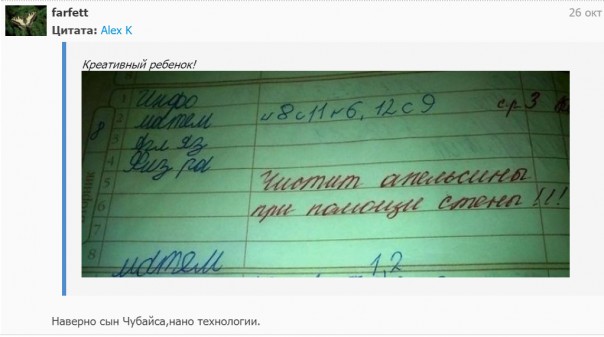 farfett
26 окт
Цитата: Alex K
Креативный ребенок!
8
1 Инфо
2 матем н8 с11 н6, 12 с9 ср 3
3 Англ яз
4 Физ ра
5 Чистит апельсины
6 при помощи стены!!!
7
8
матем 1,2
Наверно сын Чубайса,нано технологии.